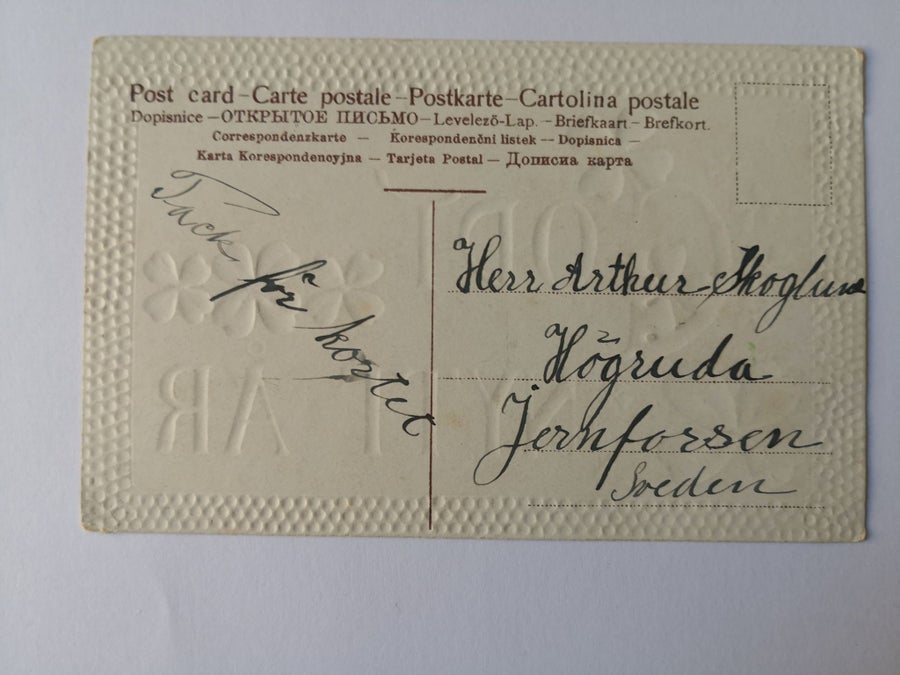 Post card – Carte postale – Postkarte – Cartolina postale
Dopisnice – ОТКРЫТОЕ ПИСЬМО – Levelező-Lap. – Briefkaart – Brefkort.
Correspondenzkarte – Korespondenčni listek – Dopisnica –
Karta Korespondencyjna – Tarjeta Postal – Дописна карта
Tack
för
kortet
Herr Arthur Skoglund
Högruda
Jernforsen
Sveden